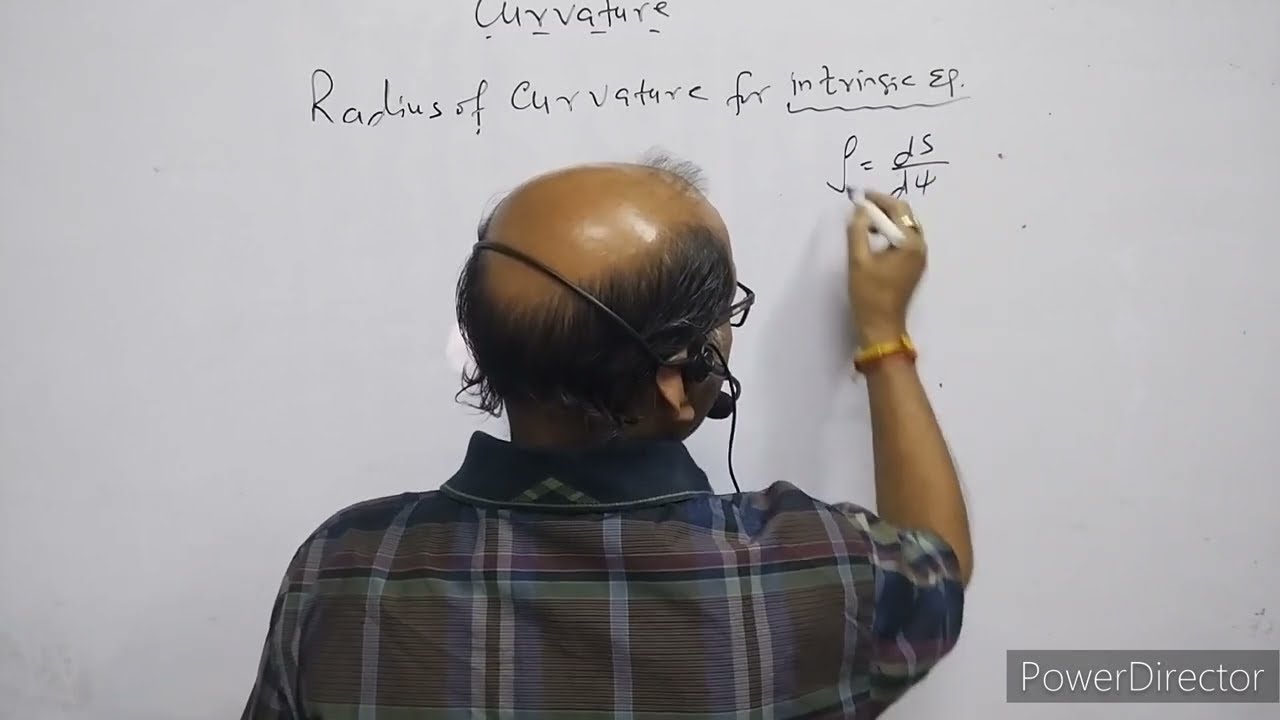 Curvature
Radius of Curvature for intrinsic Eq.
ρ = dS/dψ
PowerDirector